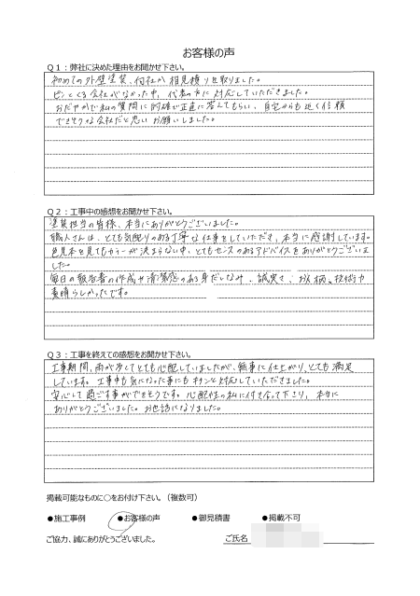 お客様の声
Q1：弊社に決めた理由をお聞かせ下さい。
初めての外壁塗装、何社か相見積りを取りました。
ピンとくる会社がなかった中、代表の方に対応していただきました。
おだやかで私の質問に的確で正直に答えてもらい、自宅からも近く信頼
できそうな会社だと思いお願いしました。
Q2：工事中の感想をお聞かせ下さい。
塗装担当の皆様、本当にありがとうございました。
職人さんは、とても気配りのある丁寧な仕事をしていただき、本当に感謝しています。
色見本を見てもカラーが決まらない中、とてもセンスのあるアドバイスをありがとうございま
した。
毎日の報告書の作成や清潔感のある身だしなみ、誠実で、お人柄、技術や
素晴らしかったです。
Q3：工事を終えての感想をお聞かせ下さい。
工事期間、雨が多くてとても心配していましたが、無事に仕上がり、とても満足
しています。工事中も気になった事にもキチンと対応していただきました。
安心して過ごす事ができそうです。心配性の私に付き合って下さり、本当に
ありがとうございました。お世話になりました。
掲載可能なものに○をお付け下さい。（複数可）
●施工事例 ●お客様の声 ●御見積書 ●掲載不可
ご協力、誠にありがとうございました。 ご氏名